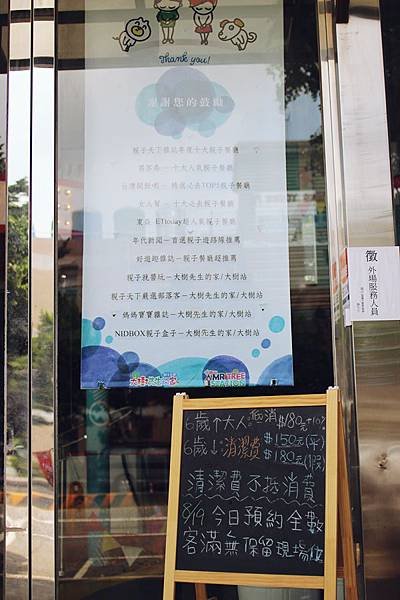 Thank you!
謝謝您的鼓勵
親子天下雜誌年度十大親子餐廳
窩客島－十大人氣親子餐廳
台灣開飯喔－精選必去TOP5親子餐廳
女人幫－十大必去親子餐廳
東森 ETtoday超人氣親子餐廳
年代新聞－首選親子遊路隊推薦
好遊趣雜誌－親子餐廳超推薦
親子就醬玩－大樹先生的家/大樹站
親子天下嚴選部落客－大樹先生的家/大樹站
媽媽寶寶雜誌－大樹先生的家/大樹站
NIDBOX親子盒子－大樹先生的家/大樹站
大樹先生的家
MR.TREE STATION
徵
外場服務人員
6歲↑大人 低消 $180元+10%
6歲↓清潔費 $150元(平)
$180元(假)
清潔費不抵消費
8/19 今日預約全數
客滿無保留現場位